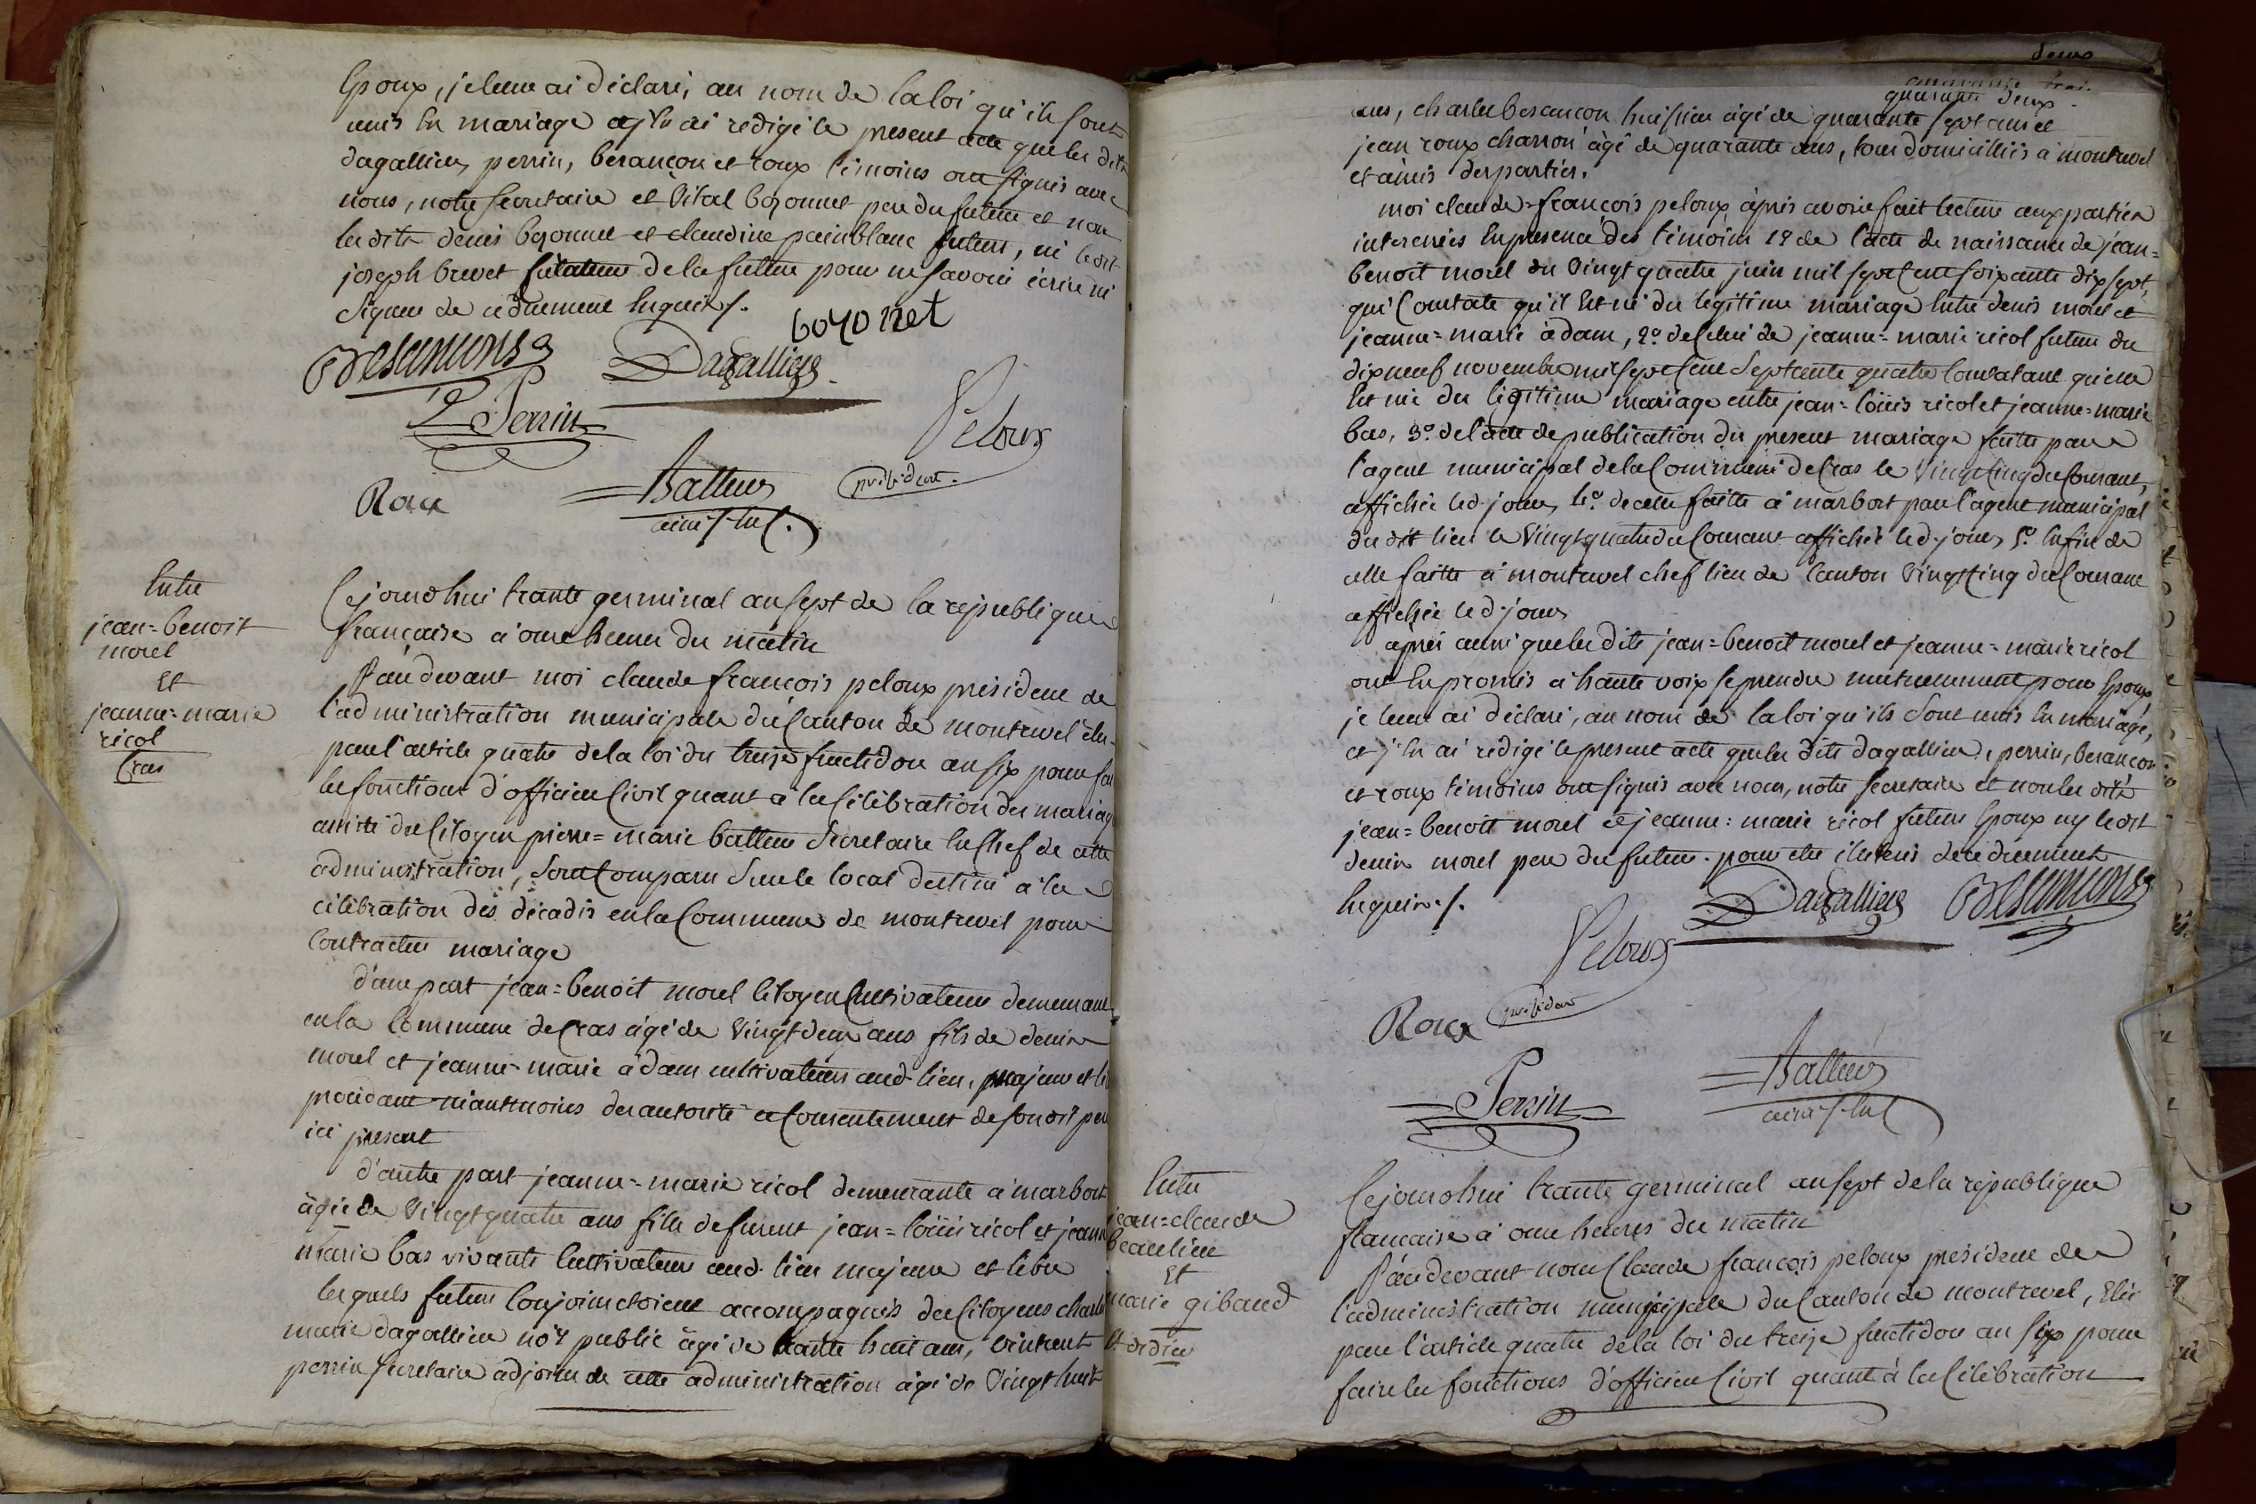 Epoux, je leur ai déclaré, au nom de la loi qu'ils sont
unis en mariage et j'en ai rédigé le present acte que les dits
dagallier, perrin, besançon et roux témoins ont signés avec
nous, notre secretaire et Vital boyonnet pere du futeur et non
les dits denis boyonnet et claudine painblanc futeurs, ni le dit
joseph brevet de la future pour ne savoir écrire ni
signer de ce duement enquis /.
boyonnet
Besancons
Dagallier
P Perrin
Peloux
président.
Roux
Batteur
Entre
jean=benoit
morel
Et
jeanne=marie
ricol
Cras
Cejourdhui trante germinal an sept de la republique
française à onze heures du matin
Pardevant moi claude françois peloux président de
l'administration municipale du Canton de montrevel élu
par l'article quatre de la loi du treize fructidor an six pour faire
les fonctions d'officier Civil quant à la Célébration des mariages
assisté du Citoyen pierre=marie batteur Secretaire en Chef de cette
administration, sont Comparu sur le local destiné à la
célébration des décadis en la Commune de montrevel pour
Contracter mariage
d'une part jean=benoit morel Citoyen Cultivateur demeurant
en la Commune de Cras âgé de Vingt deux ans fils de denis
morel et jeanne=marie adam cultivateurs aud. lieu, majeur et libre
procédant niantmoins de autorité et Consentement de son dit pere
ici present
d'autre part jeanne=marie ricol demeurante à marbost
âgée de Vingt quatre ans fille de furent jean=loüis ricol et jeanne
Marie bas vivants Cultivateurs aud. lieu majeure et libre
lesquels futeurs Conjoints étoient accompagnés des Citoyens charle
marie dagallier not. public âgé de trante huit ans, vincent
perrin secretaire adjoint de cette administration âgé de Vingt huit
deux
quarante deux
ans, charles besancon huissier âgé de quarante sept ans et
jean roux charron âgé de quarante ans, tous domiciliés à montrevel
et amis des parties.
moi claude=françois peloux après avoir fait lecture aux parties
interessées en presence des témoins 1º de l'acte de naissance de jean=
benoit morel du Vingt quatre juin mil sept Cent soixante dix sept,
qui Constate qu'il Est né du légitime mariage Entre denis morel et
jeanne=marie adam, 2º de Celui de jeanne=marie ricol future du
dix neuf novembre mil sept Cent Septante quatre Constatant qu'elle
Est née du légitime mariage entre jean=loüis ricol et jeanne=marie
bas, 3º de l'acte de publication du present mariage faitte par
l'agent municipal de la Commune de Cras le Vingt Cinq du Courant,
affichée led. jour, 4º de celle faitte à marbost par l'agent municipal
du dit lieu le Vingt quatre du Courant affichée led. jour, 5º Enfin de
celle faitte à montrevel chef lieu de Canton Vingt Cinq du Courant
affichée led. jour
après aussi que les dits jean=benoit morel et jeanne=marie ricol
ont Eu promis à haute voix se prendre mutuelement pour Epoux,
je leur ai déclaré, au nom de la loi qu'ils sont unis En mariage,
et j'en ai rédigé le present acte que les dits dagallier, perrin, besancon
et roux témoins ont signés avec nous, notre secretaire et non les dits
jean=benoit morel et jeanne=marie ricol futeurs Epoux ny le dit
denis morel pere du futeur pour etre illiterés de ce duement
Enquis /.
Dagallier
Besancons
Peloux
président
Roux
Perrin
Batteur
Entre
jean=claude
beaulieu
Et
marie gibaud
St didier
Cejourdhui trante germinal an sept de la république
francaise à onze heures du matin
Pardevant nous Claude françois peloux président de
l'administration municipale du Canton de montrevel, Elu
par l'article quatre de la loi du treize fructidor an six pour
faire les fonctions d'officier Civil quant à la Célébration